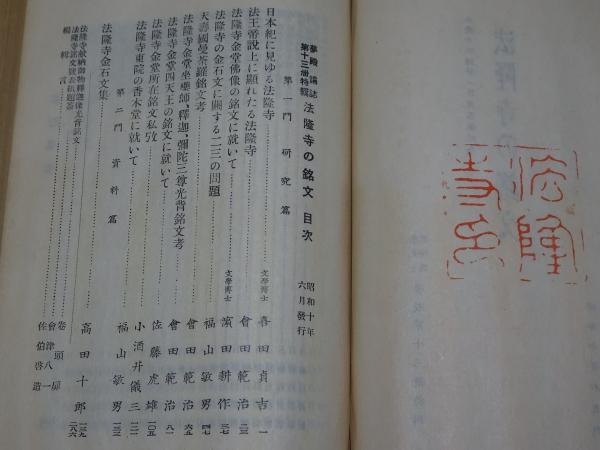 夢殿論誌
第十三冊特輯
法隆寺の銘文 目次
昭和十年
六月發行
第一門 研究篇
日本紀に見ゆる法隆寺 文學博士 喜田貞吉 一
法王帝說上に顯れたる法隆寺 會田範治 二三
法隆寺金堂佛像の銘文に就いて 文學博士 濱田耕作 三七
法隆寺の金石文に關する二三の問題 福山敏男 四七
天壽國曼荼羅銘文考 會田範治 六五
法隆寺金堂坐藥師、釋迦、彌陀三尊光背銘文考 會田範治 八一
法隆寺金堂四天王の銘文に就いて 佐藤虎雄 一〇五
法隆寺金堂所在銘文私攷 小酒井儀三 一二一
法隆寺東院の香木堂に就いて 福山敏男 一三三
第二門 資料篇
法隆寺金石文集 高田十郎 一三九
法隆寺獻納御物釋迦像光背銘文 卷頭扉
法隆寺銘文號表紙題簽 會津八一
編輯言 佐伯啓造 二八六
法隆
寺印